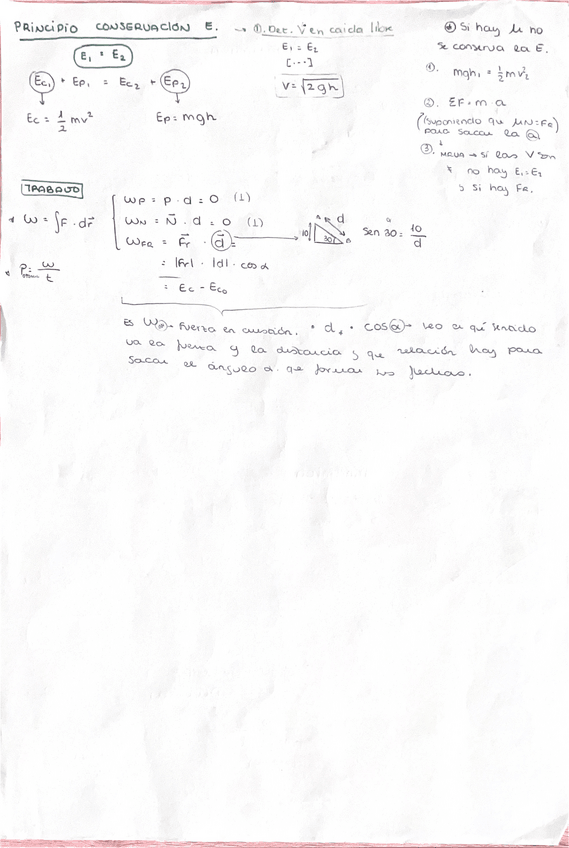 PRINCIPIO CONSERVACIÓN E. → ①. Det. V en caida libre
E₁ = E₂
Ec₁ + Ep₁ = Ec₂ + Ep₂
Ec = 1/2 mv²
Ep = mgh
E₁ = E₂
[...]
V = √2gh
Si hay μ no
se conserva la E.
①. mgh₁ = 1/2 mv₂²
②. ΣF = m · a
(Suponiendo que μN = Fr)
para sacar la ⓐ
③. MRUA → si las V son
no hay E₁ = E₂
si hay FR.
TRABAJO
* W = ∫F · dr⃗
WP = P · d = 0 (⊥)
WN = N⃗ · d = 0 (⊥)
WFR = F⃗r · d⃗ =
= |Fr| · |d| · cos α
= Ec - Ec₀
* P = W/t
10 d 30
sen 30 = 10/d
Es W → fuerza en cuestión. * d * cos α → veo en qué sentido
va la fuerza y la distancia y que relación hay para
sacar el ángulo α que forman las flechas.